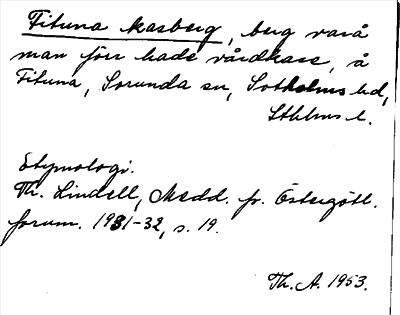 Fituna kasberg, berg varå
man förr hade vårdkase, å
Fituna, Sorunda sn, Sotholms hd,
Sthlms l.
Etymologi.
Th. Lindell, Medd. fr. Östergötl.
fornm. 1931-32, s. 19.
Th. A. 1953.